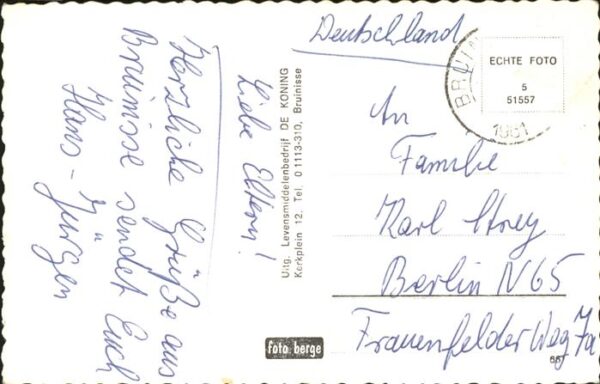 Deutschland
BRUI
1981
ECHTE FOTO
5
51557
Liebe Eltern!
Herzliche Grüße aus
Bruinisse sendet Euch
Hans-Jürgen
Uitg. Levensmiddelenbedrijf DE KONING
Kerkplein 12. Tel. 01113-310, Bruinisse
An
Familie
Karl Strey
Berlin N65
Frauenfelder Weg 7a
foto berge